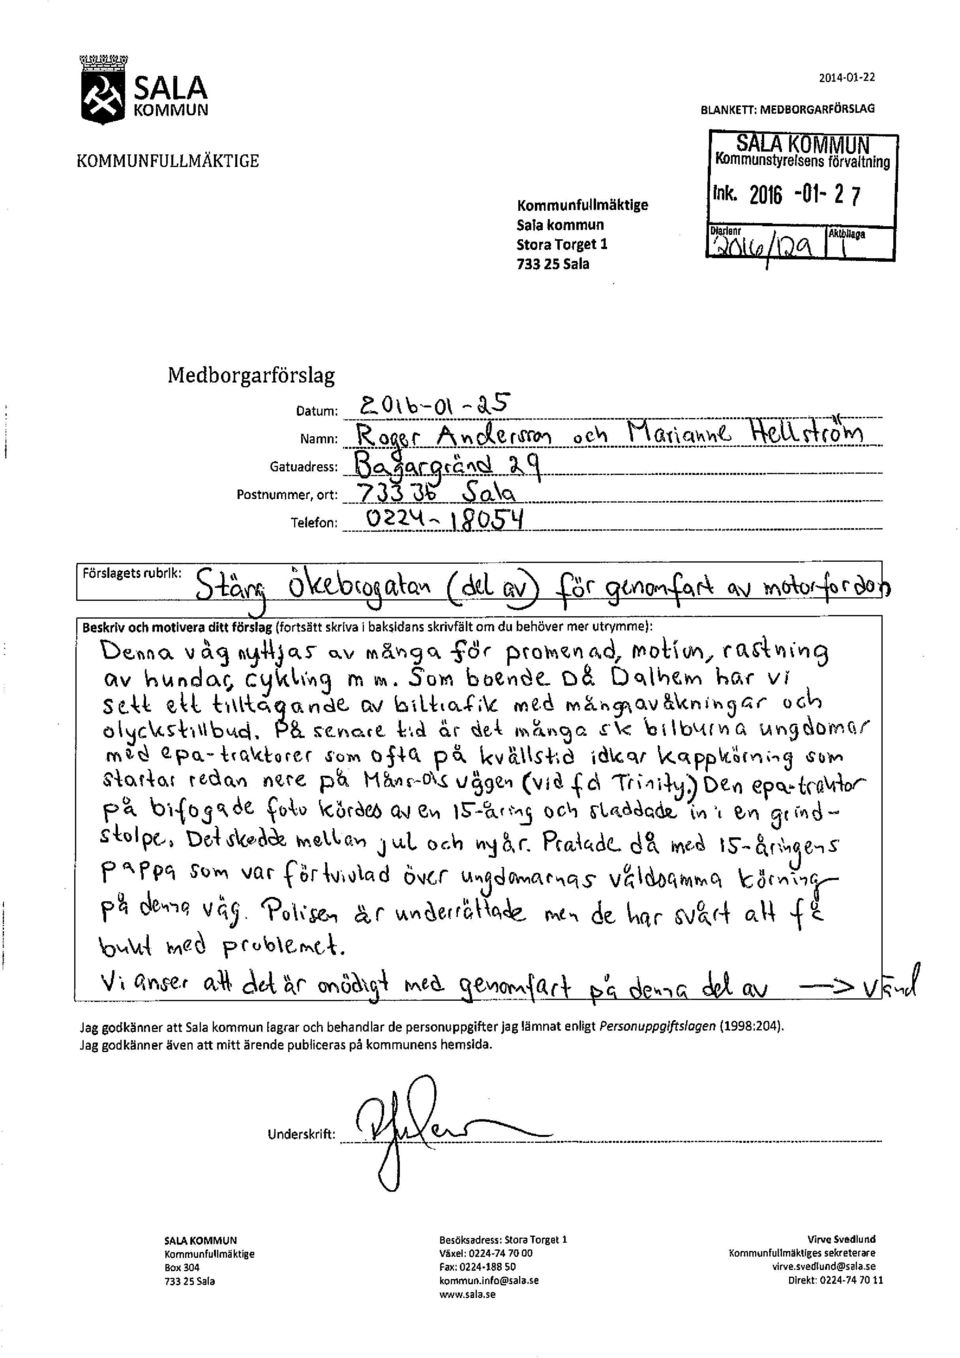 SALA
KOMMUN
2014-01-22
BLANKETT: MEDBORGARFÖRSLAG
KOMMUNFULLMÄKTIGE
SALA KOMMUN
Kommunstyrelsens förvaltning
Ink. 2016 -01- 2 7
Diarienr
Aktbilaga
2016/129
1
Kommunfullmäktige
Sala kommun
Stora Torget 1
733 25 Sala
Medborgarförslag
Datum: 2016-01-25
Namn: Roger Andersson och Marianne Hellström
Gatuadress: Bagargränd 29
Postnummer, ort: 733 36 Sala
Telefon: 0224-18054
Förslagets rubrik: Stäng Ökebrogatan (del av) för genomfart av motorfordon
Beskriv och motivera ditt förslag (fortsätt skriva i baksidans skrivfält om du behöver mer utrymme):
Denna väg nyttjas av många för promenad, motion, rastning
av hundar, cykling m m. Som boende på Dalhem har vi
sett ett tilltagande av biltrafik med mång avåkningar och
olyckstillbud. På senare tid är det många s k bilburna ungdomar
med epa-traktorer som ofta på kvällstid idkar kappkörning som
startar redan nere på Måns-Ols väggen (vid fd Trinity.) Den epa-traktor
på bifogade foto kördes av en 15-åring och sladdade in i en grind-
stolpe. Det skedde mellan jul och nyår. Pratade då med 15-åringens
pappa som var förtvivlad över ungdomarnas våldsamma körning
på denna väg. Polisen är underrättade men de har svårt att få
bukt med problemet.
Vi anser att det är onödigt med genomfart på denna del av —> Vänd
Jag godkänner att Sala kommun lagrar och behandlar de personuppgifter jag lämnat enligt Personuppgiftslagen (1998:204).
Jag godkänner även att mitt ärende publiceras på kommunens hemsida.
Underskrift:
SALA KOMMUN
Kommunfullmäktige
Box 304
733 25 Sala
Besöksadress: Stora Torget 1
Växel: 0224-74 70 00
Fax: 0224-188 50
kommun.info@sala.se
www.sala.se
Virve Svedlund
Kommunfullmäktiges sekreterare
virve.svedlund@sala.se
Direkt: 0224-74 70 11